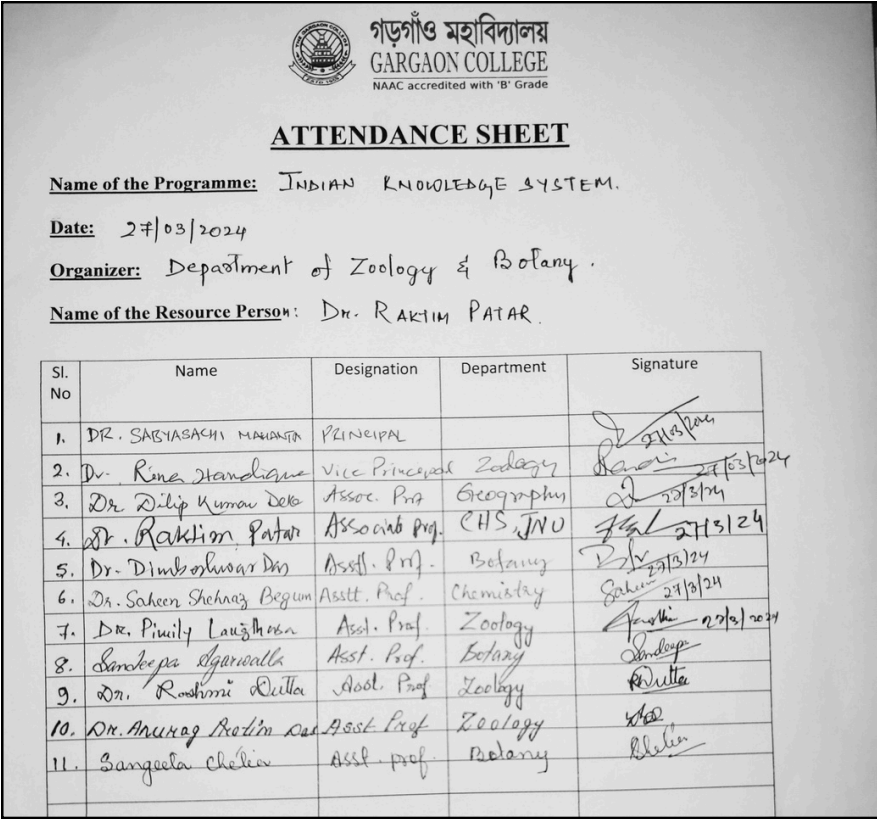 গড়গাঁও মহাবিদ্যালয়
GARGAON COLLEGE
NAAC accredited with 'B' Grade
ATTENDANCE SHEET
Name of the Programme: INDIAN KNOWLEDGE SYSTEM.
Date: 27/03/2024
Organizer: Department of Zoology & Botany.
Name of the Resource Person: Dr. RAKTIM PATAR.
Sl. No Name Designation Department Signature
1. DR. SABYASACHI MAHANTA PRINCIPAL 27/03/2024
2. Dr. Rina Handique Vice Principal Zoology 27/03/2024
3. Dr Dilip Kumar Deka Assoc. Prof Geography 27/3/24
4. Dr. Raktim Patar Associate Prof. CHS, JNU 27/3/24
5. Dr. Dimbeshwar Das Asstt. Prof. Botany 27/3/24
6. Dr. Saheen Shehnaz Begum Asstt. Prof. Chemistry Saheen 27/3/24
7. Dr. Pimily Langthasa Asst. Prof. Zoology 27/3/2024
8. Sandeepa Agarwalla Asst. Prof. Botany Sandeepa
9. Dr. Rashmi Dutta Asst. Prof Zoology RDutta
10. Dr. Anurag Protim Das Asst Prof Zoology
11. Sangeeta Chetia Asst. prof. Botany Chetia